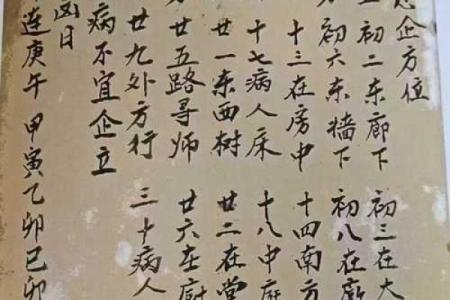 忌企方位
初二东廊下 初三在大
初六东墙下 初八在
十三在房中 十四南方
十七病人床 十八中庭
廿一东西树 廿二在堂
廿五路寻师 廿六在厨
廿九外方行 三十病人
病不宜企立
凶日
连庚午 甲寅乙卯己卯